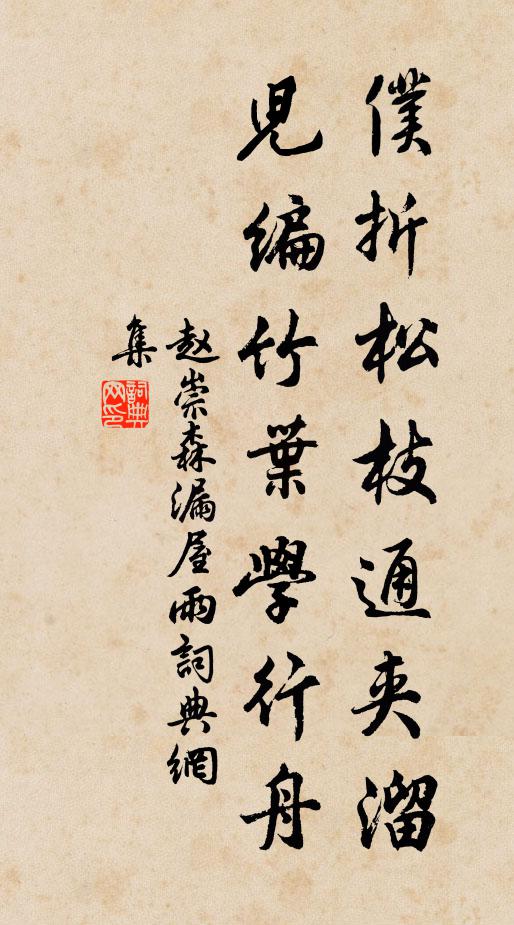 僕折松枝通夾溜
兒編竹葉學行舟
赵崇森漏屋雨詞典網
集
詞典
网印